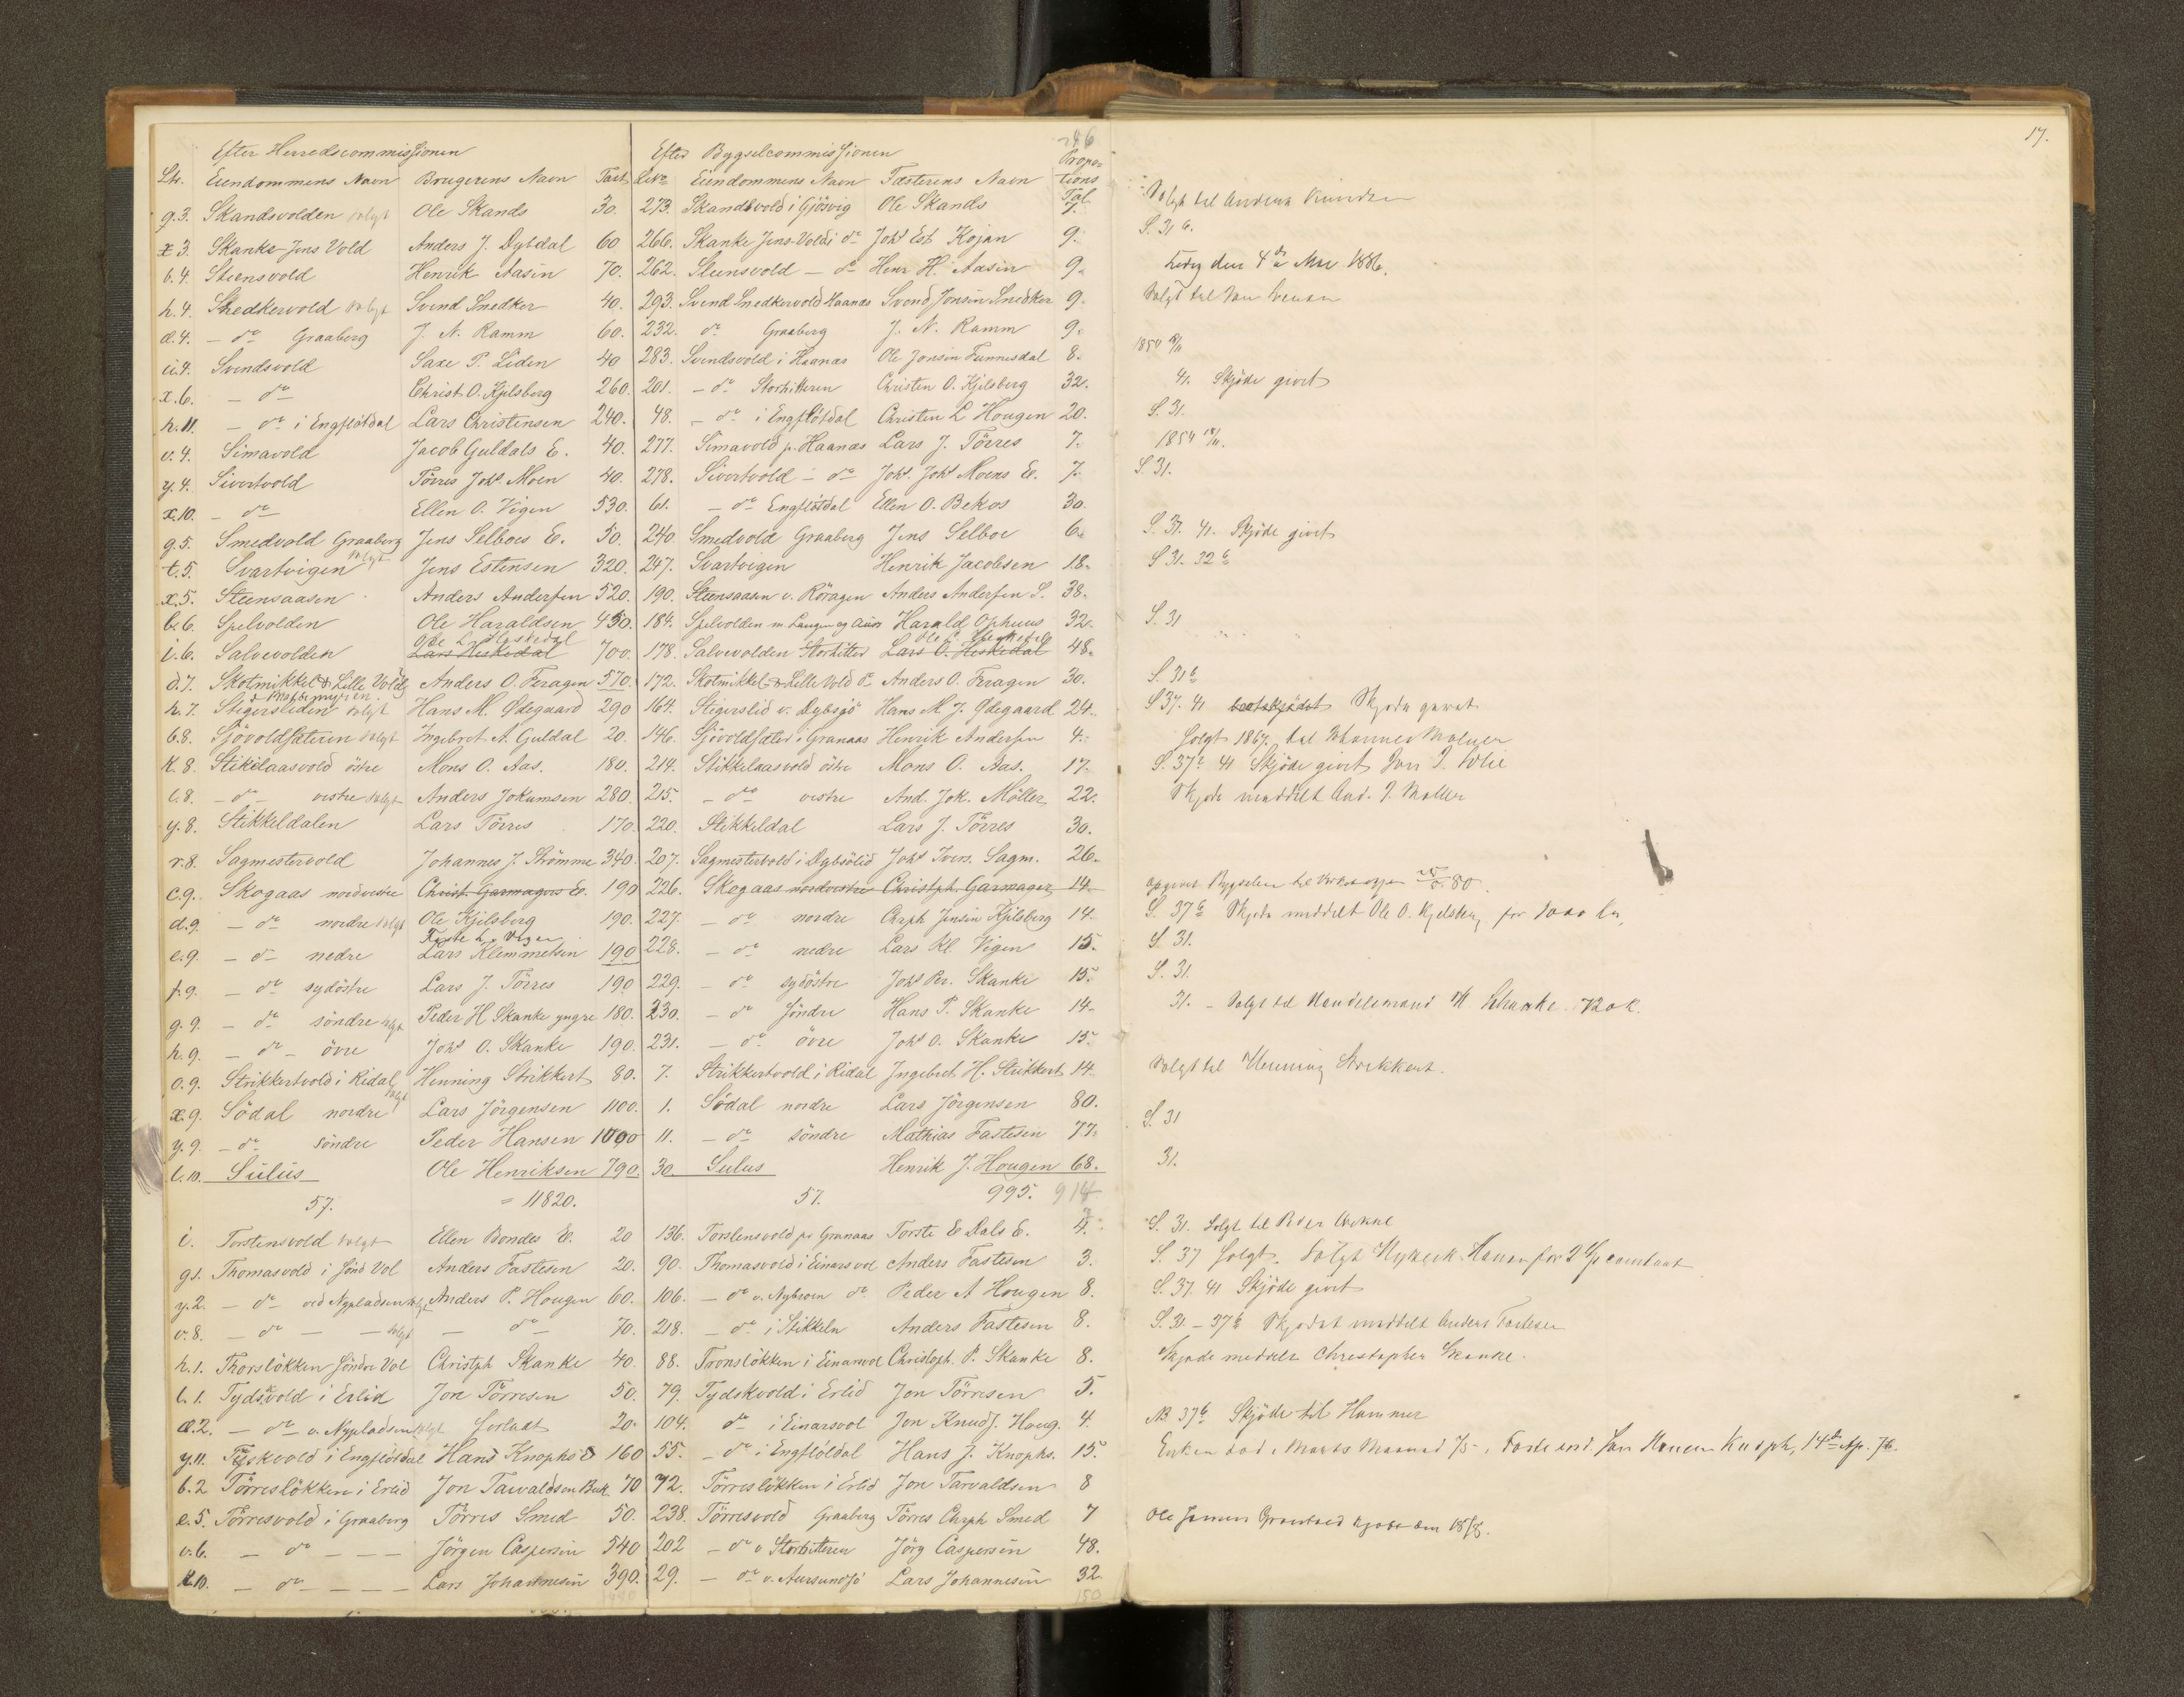 17.
Efter Herredscommissionen Efter Bygselcommissionen
Ltr. Eiendommens Navn Brugerens Navn Taxt Eiendommens Navn Fæsterens Navn Propor=tions Tal
g.3. Skandsvolden solgt Ole Skands 30. 273. Skandsvold i Gjösvig Ole Skands 7. Solgt til
x3. Skanke-Jens Vold Anders J. Dybdal 60 266. Skanke Jens-Vold i do Johs Est Kojan 9. S. 31 6.
b.4. Steensvold Henrik Aasen 70. 262. Steensvold - do Henr H. Aasen 9. den 4de Mai 1886.
h.4. Snedkervold solgt Svend Snedker 40. 293. Svend Snedkervold Haanæs Svend Jonsen Snedker 9. Solgt til
d.4. - do Graaberg J. N. Ramm 60. 232. do Graaberg J. N. Ramm 9.
ii.4. Svendsvold Saxe P. Liden 40 283. Svendsvold i Haanæs Ole Jonsen Funnesdal 8. 1854
x.6. - do Christ O. Kjelsberg 260. 201. - do Storhitteren Christen O. Kjelsberg 32. 41. Skjöde givet
h.11. - do i Engflötdal Lars Christensen 240. 48. - do i Engflötdal Christen L Hougen 20. S. 31.
v.4. Simavold Jacob Guldals E. 40. 277. Simavold p. Haanæs Lars J. Törres 7. 1854
y.4. Sivertvold Törres Johs Moen 40. 278. Sivertvold - do Johs. Johs Moens E. 7. S. 31.
x.10. - do Ellen O. Vigen 530. 61. - do Engflötdal Ellen O. Bekos 30.
g.5. Smedvold Graaberg Jens Selboes E. 50. 240. Smedvold Graaberg Jens Selboe 6. S. 31. 41. Skjöde givet
t.5. Svartvigen solgt Jens Estensen 320. 247. Svartvigen Henrik Jacobsen 18. S 31. 32
x.5. Steensaasen Anders Andersen 520. 190. Steensaasen v. Röragen Anders Andersen S. 38.
b.6. Spelvolden Ole Haraldsen 450. 184. Spelvolden m Langen og Aien Harald Ophuus 32. S. 31
i.6. Salvevolden Lars Heskedal 700. 178. Salvevolden Storhitter Lars O. Heskedal 48.
d.7. Skotmikkel & Lille Vold Anders O. Feragen 570. 172. Skotmikkel & Lille Vold do Anders O. Feragen 30. S. 31
h.7. Stigersliden solgt Hans M. Ødegaard 290 164. Stigerslid v. Dybsjö Hans M. J. Ødegaard 24. S 37. 41 Skjøde
b.8. Sjövoldsæteren solgt Ingebrot A. Guldal 20. 146. Sjövoldsæter i Granaas Henrik Andersen 4. Solgt 1867 til
K.8. Stikkelaasvold östre Mons O. Aas. 180. 214. Stikkelaasvold östre Mons O. Aas. 17. S. 37 41 Skjöde givet
l.8. - do - vestre solgt Anders Jokumsen 280. 215. - do vestre And. Jok. Möller 22. Skjøde meddelt And. J. Möller
y.8. Stikkeldalen Lars Törres 170. 220. Stikkeldal Lars J. Törres 30.
r.8. Sagmestervold Johannes J. Strömme 340. 207. Sagmestervold i Dybsölid Johs Ivers. Sagm. 26.
c.9. Skogaas nordvestre Christ. Garmagers E. 190 226. Skogaas nordvestre Christph. Garmager 14. opgivet Bygselen til
d.9. - do nordre solgt Ole Kjelsberg 190. 227. - do nordre Chrph Jensen Kjelsberg 14. S. 37 Skjøde meddelt Ole O. Kjelsberg for
e.9. - do nedre Lars Klemmetsen 190 228. - do nedre Lars Kl. Vigen 15. S. 31.
f.9. - do sydöstre Lars J. Törres 190 229. - do sydöstre Johs Per. Skanke 15. S. 31.
g.9. - do söndre solgt Peder H Skanke yngre 180. 230. - do Söndre Hans P. Skanke 14. 31. - Solgt til Handelsmand
h.9. - do - övre Johs O. Skanke 190. 231. - do övre Johs O. Skanke 15.
o.9. Strikkertvold i Ridal Henning Strikkert 80. 7. Strikkertvold i Ridal Ingebret H. Strikkert 14. Solgt til Henning Strikkert.
x.9. Södal nordre solgt Lars Jörgensen 1100. 1. Södal nordre Lars Jörgensen 80. S. 31
y.9. - do söndre Peder Hansen 1000 11. - do söndre Mathias Fastesen 77.
l.10. Sulus Ole Henriksen 790. 30. Sulus Henrik J. Hougen 68. 31.
57. = 11820. 57. 995. 914
i. Torstensvold solgt Ellen Bondes E. 20 136. Torstensvold p. Granaas Torste E Dals E. 4. S. 31. Solgt til Peder
g1. Thomasvold i Sönd Vol Anders Fastesen 20. 90. Thomasvold i Einarsvol Anders Fastesen 3. S. 37 Solgt.
y.2. - do ved Nypladsen Anders P. Hougen 60. 106. - do v. Nybroen do Peder A Hougen 8. S. 37. 41 Skjöde givet
v.8. - do - - solgt - do - 70. 218. - do i Stikkeln Anders Fastesen 8. S. 31 - 37 Skjødet meddelt Anders Fastesen
h.1. Thorslökken Söndre Vol Christph Skanke 40. 88. Tronslökken i Einarsvol Christoph. P. Skanke 8. Skjøde meddelt Christopher Skanke.
l.1. Tydskvold i Erlid Jon Törresen 50. 79. Tydskvold i Erlid Jon Törresen 5.
d.2. - do v. Nypladsen solgt forladt 20. 104. do i Einarsvol Jon Knuds. Houg. 4. NB 37 Skjöde til Hammer
y.11. Tyskvold i Engflötdal Hans Knophs E 160 55. - do i Engflötdal Hans J. Knophs. 15. Enken död i Marts Maaned 75.
b.2 Törreslökken i Erlid Jon Tarvaldsen Bek. 70 72. Törreslökken i Erlid Jon Tarvaldsen 8
e.5. Törresvold i Graaberg Törres Smed 50. 238. Törresvold Graaberg Törres Chrph Smed 7 Ole Jensen
v.6. - do - - - Jörgen Caspersen 540 202 - do v Storhitteren Jörg Caspersen 48.
K.10. - do - - - Lars Johannesen 390. 29. - do v. Aursundsjö Lars Johannesen 32.
150